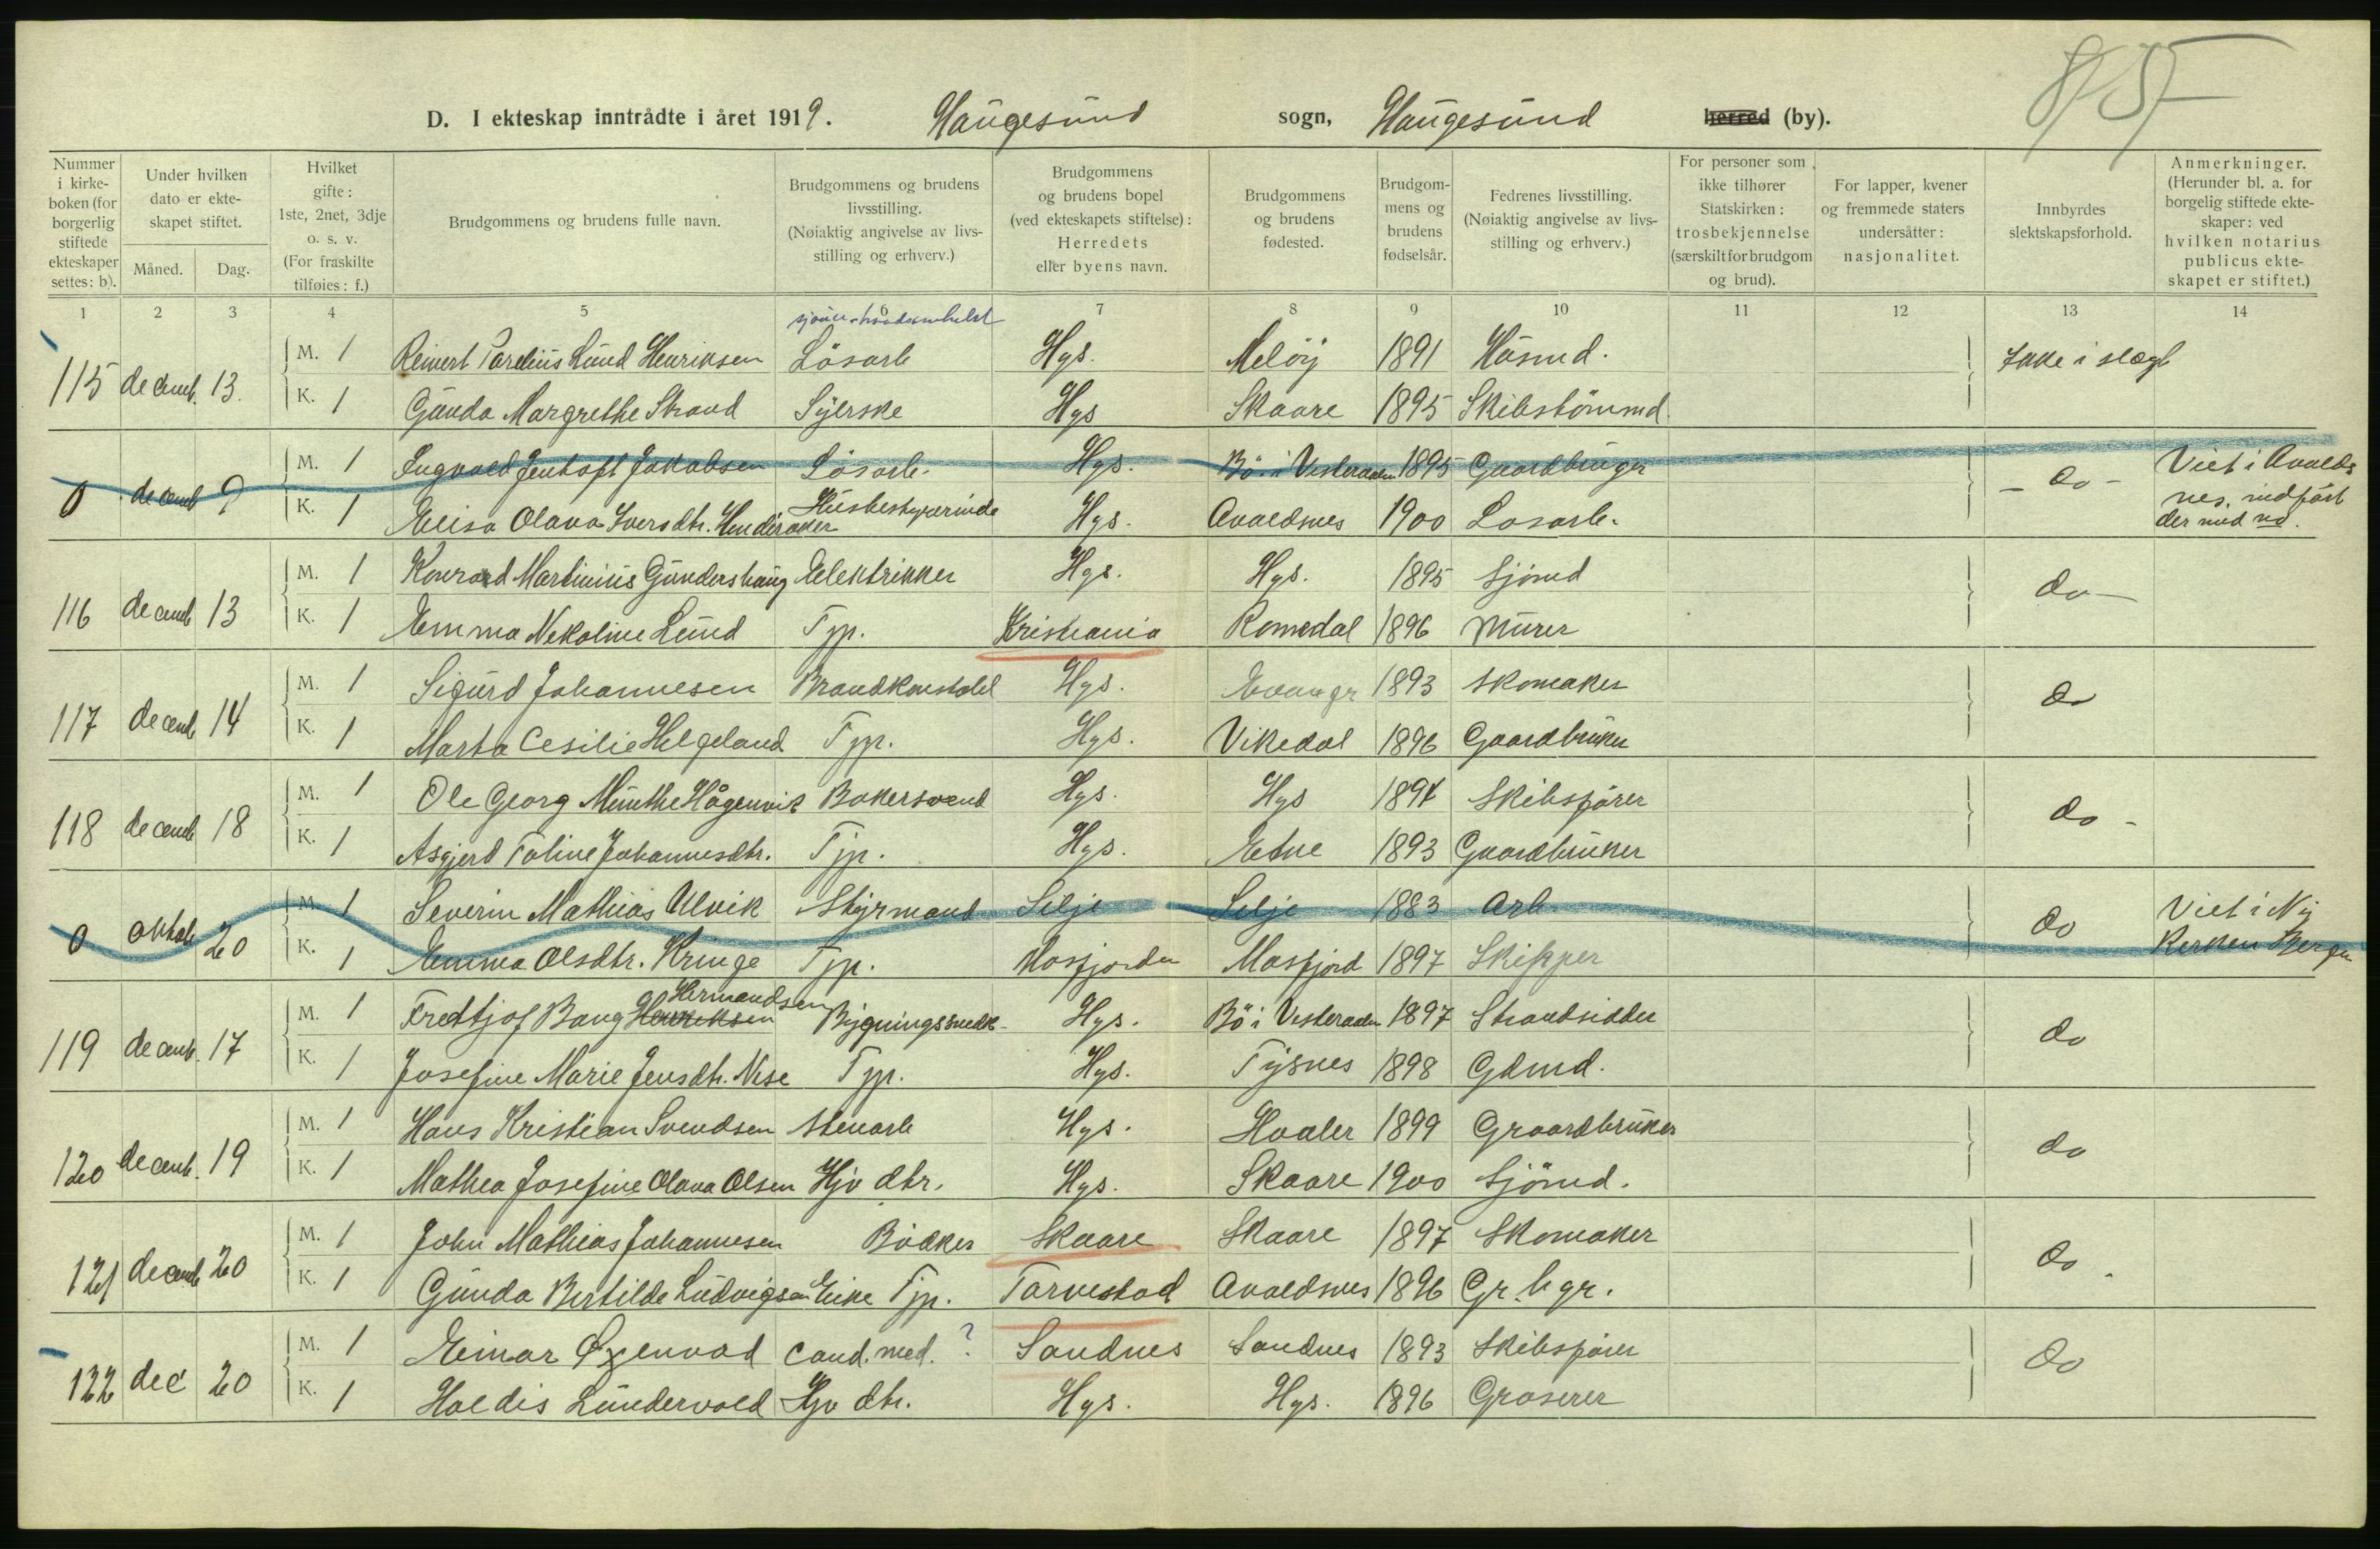 8/5
D. I ekteskap inntrådte i året 1919. Haugesund sogn, Haugesund herred (by).
Nummer i kirkeboken (for borgerlig stiftede ekteskaper settes: b).
Under hvilken dato er ekteskapet stiftet.
Måned. Dag.
Hvilket gifte: 1ste, 2net, 3dje o. s. v. (For fraskilte tilføies: f.)
Brudgommens og brudens fulle navn.
Brudgommens og brudens livsstilling. (Nøiaktig angivelse av livsstilling og erhverv.)
Brudgommens og brudens bopel (ved ekteskapets stiftelse): Herredets eller byens navn.
Brudgommens og brudens fødested.
Brudgommens og brudens fødselsår.
Fedrenes livsstilling. (Nøiaktig angivelse av livsstilling og erhverv.)
For personer som ikke tilhører Statskirken: trosbekjennelse (særskilt for brudgom og brud).
For lapper, kvener og fremmede staters undersåtter: nasjonalitet.
Innbyrdes slektskapsforhold.
Anmerkninger. (Herunder bl. a. for borgelig stiftede ekteskaper: ved hvilken notarius publicus ekteskapet er stiftet.)
1 2 3 4 5 6 7 8 9 10 11 12 13 14
115 decemb. 13. M. 1 Reinert Parelius Lund Henriksen Lösarb Hgs. Melöy 1891 Husmd. Ikke i slægt
K. 1 Gunda Margrethe Strand Syerske Hgs Skaare 1895 Skibstömmd.
0 decemb 9 M. 1 Ingvald Jentoft Jakobsen Lösarb. Hgs. Bö i Vesteraalen 1895 Gaardbruger - do - Viet i Avalds
K. 1 Elisa Olava Iversdtr. Husbestyrerinde Hgs. Avaldsnes 1900 Losarb. nes, indført der med no.
116 decemb 13 M. 1 Konrad Martinius Gundershaug Elektrikker Hgs. Hgs. 1895 Sjömd do -
K. 1 Emma Nekoline Lund Tjp. Kristiania Romedal 1896 Murer
117 decemb 14 M. 1 Sigurd Johannesen Brandkonstabel Hgs. 1893 Skomaker do
K. 1 Marta Cesilie Helgeland Tjp. Hgs. Vikedal 1896 Gaardbruker
118 decemb 18 M. 1 Ole Georg Munthe Hågenvik Bakersvend Hgs. Hgs 1894 Skibsfører do -
K. 1 Asgjerd Toline Johannesdtr. Tjp. Hgs. Etne 1893 Gaardbruker
0 oktob 20 M. 1 Severin Mathias Ulvik Styrmand Selje Selje 1883 Arb do Viet i Ny
K. 1 Emma Olsdtr. Kringe Tjp. Masfjorden Masfjord 1897 Skipper Kirken Bergen
119 decemb. 17 M. 1 Fredtjof Bang Henriksen Hermandsen Bygningssnedk. Hgs. Bö i Vesteraalen 1897 Strandsidder do
K. 1 Josefine Marie Jensdtr. Nese Tjp. Hgs. Tysnes 1898 Gdmd.
120 decemb. 19 M. 1 Hans Kristian Svendsen Stenarb Hgs. Hvaler 1899 Graardbruker do
K. 1 Mathea Josefine Olava Olsen Hjv dtr. Hgs. Skaare 1900 Sjömd.
121 decemb 20 M. 1 John Mathias Johannesen Bödker Skaare Skaare 1897 Skomaker do.
K. 1 Gunda Bertilde Ludvigsen Eike Tjp. Torvestad Avaldsnes 1896 Gr.bgr.
122 dec 20 M. 1 Einar Oxenvad cand. med. ? Sandnes Sandnes 1893 Skibsfører do
K. 1 Haldis Lundervold Hjv dtr. Hgs. Hgs. 1896 Groserer